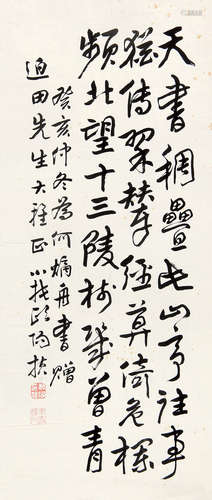 天書稠疊此山亭往事
猶傳翠輦經莫倚危欄
頻北望十三陵樹幾曾青
癸亥仲冬為何舟書贈
迫田先生大雅正小歐陽